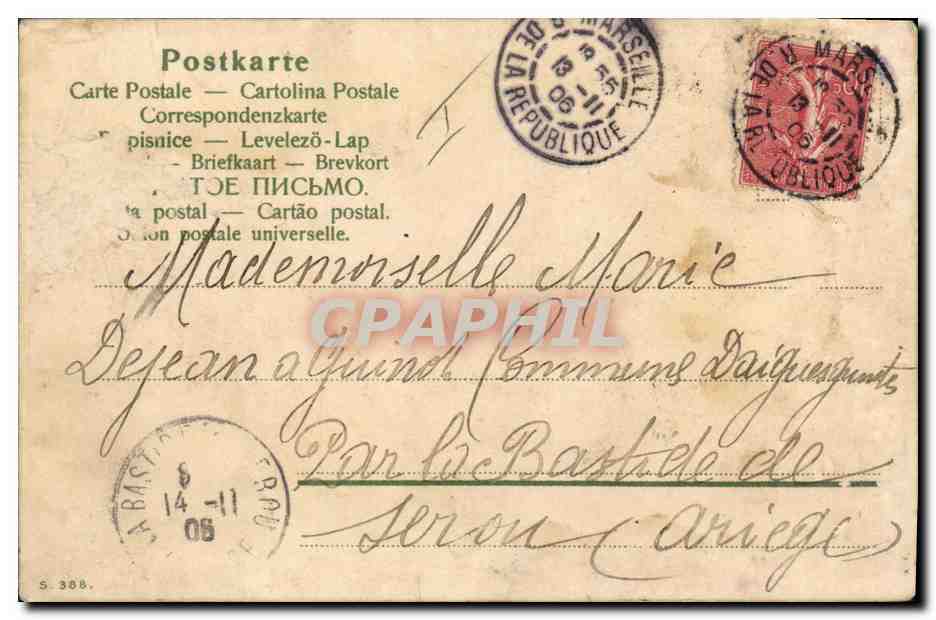 Postkarte
Carte Postale — Cartolina Postale
Correspondenzkarte
pisnice — Levelező-Lap
— Briefkaart — Brevkort
ТОЕ ПИСЬМО.
ta postal — Cartão postal.
on postale universelle.
MARSEILLE
13 -11
06
R. DE LA REPUBLIQUE
MARSE
13 11
06
R. DE LA R UBLIQUE
Mademoiselle Marie
CPAPHIL
Dejean a Guinot (Commune Daiguesjuntes
Par la Bastide de
Serou (Ariège)
LA BAST EROU
8
14 -11
06
S. 388.